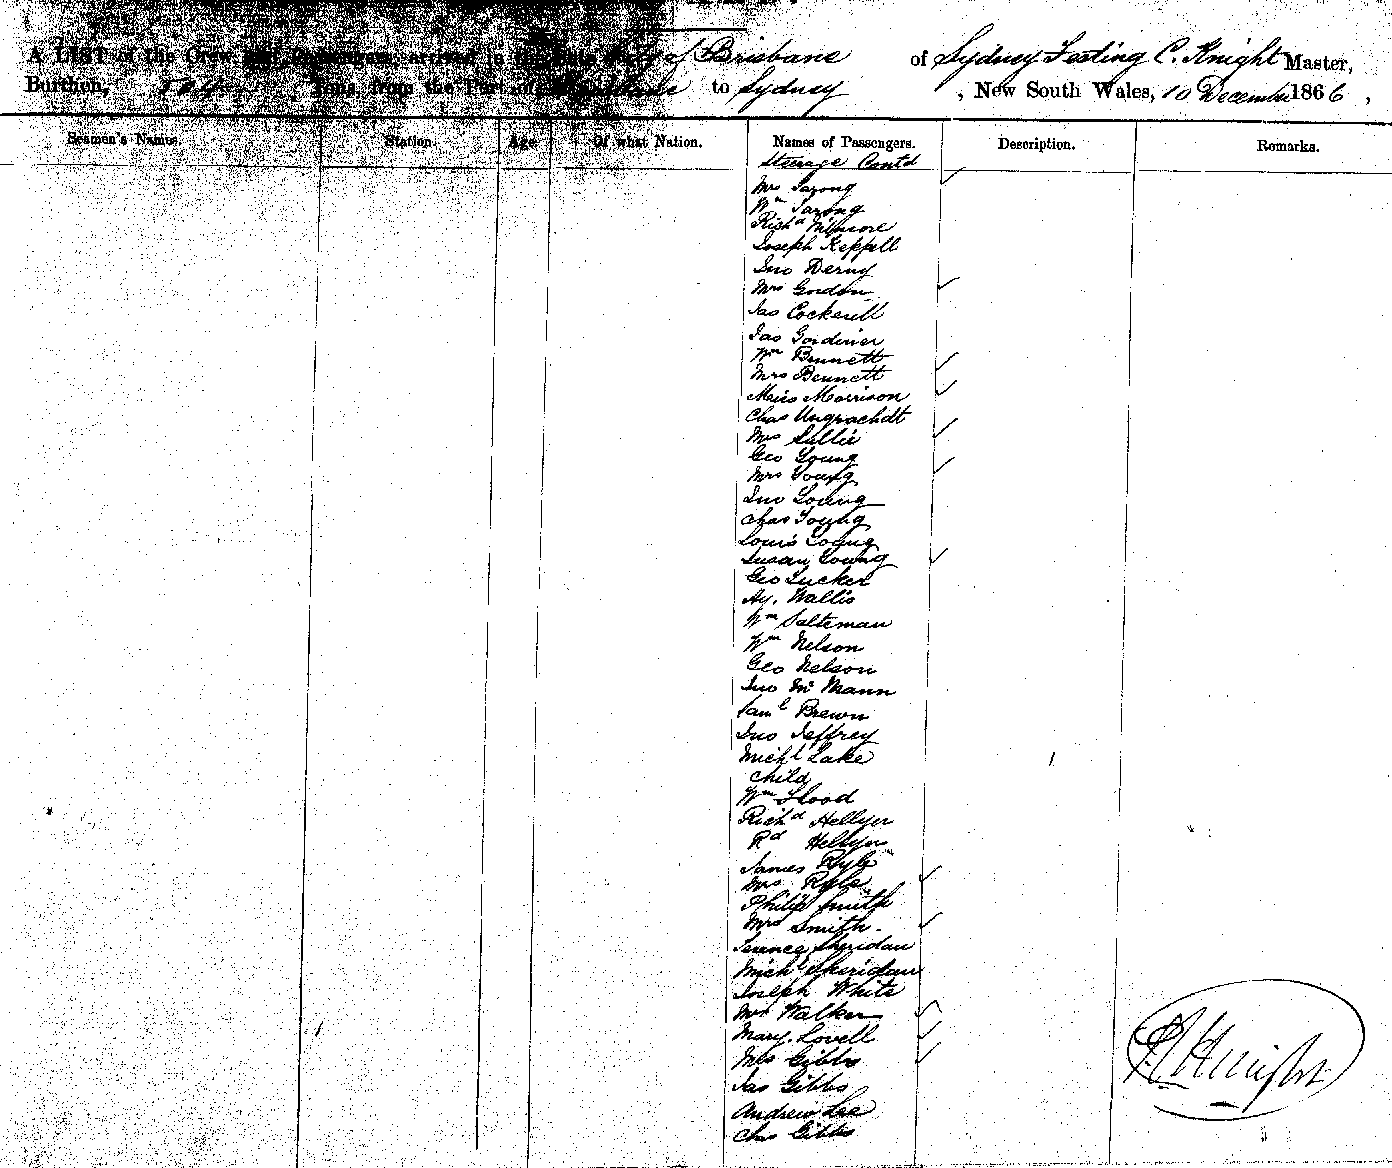 A LIST of the Crew and Passengers arrived in the City of Brisbane of Sydney Testing C. Knight Master,
Burthen, Tons, from the Port of Brisbane to Sydney , New South Wales, 10 December 1866 ,
Seamen's Names. Station. Age. Of what Nation. Names of Passengers. Description. Remarks.
Steerage Contd
Mrs Sarong
Wm Sarong
Richd Wilmore
Joseph Keppell
Jno Derny
Mrs Gordon
Jas Cockerell
Jas Gordinier
Wm Bennett
Mrs Bennett
Miss Morrison
Chas Ungrachdt
Mrs Sullie
Geo Young
Mrs Young
Jno Young
Chas Young
Louis Young
Susan Young
Geo Tucker
Hy. Wallis
Wm Salteman
Wm Nelson
Geo Nelson
Jno Mc Mann
Saml Brown
Jno Jeffrey
Michl Lake
Child
Wm Flood
Richd Hellyer
Rd Hellyer
James Ryle
Mrs Ryle
Philip Smith
Mrs Smith
Terence Sheridan
Michl Sheridan
Joseph White
Mrs Walker
Mary Lovell
Mrs Gibbs
Jas Gibbs
Andrew Lee
Chas Gibbs
Knight